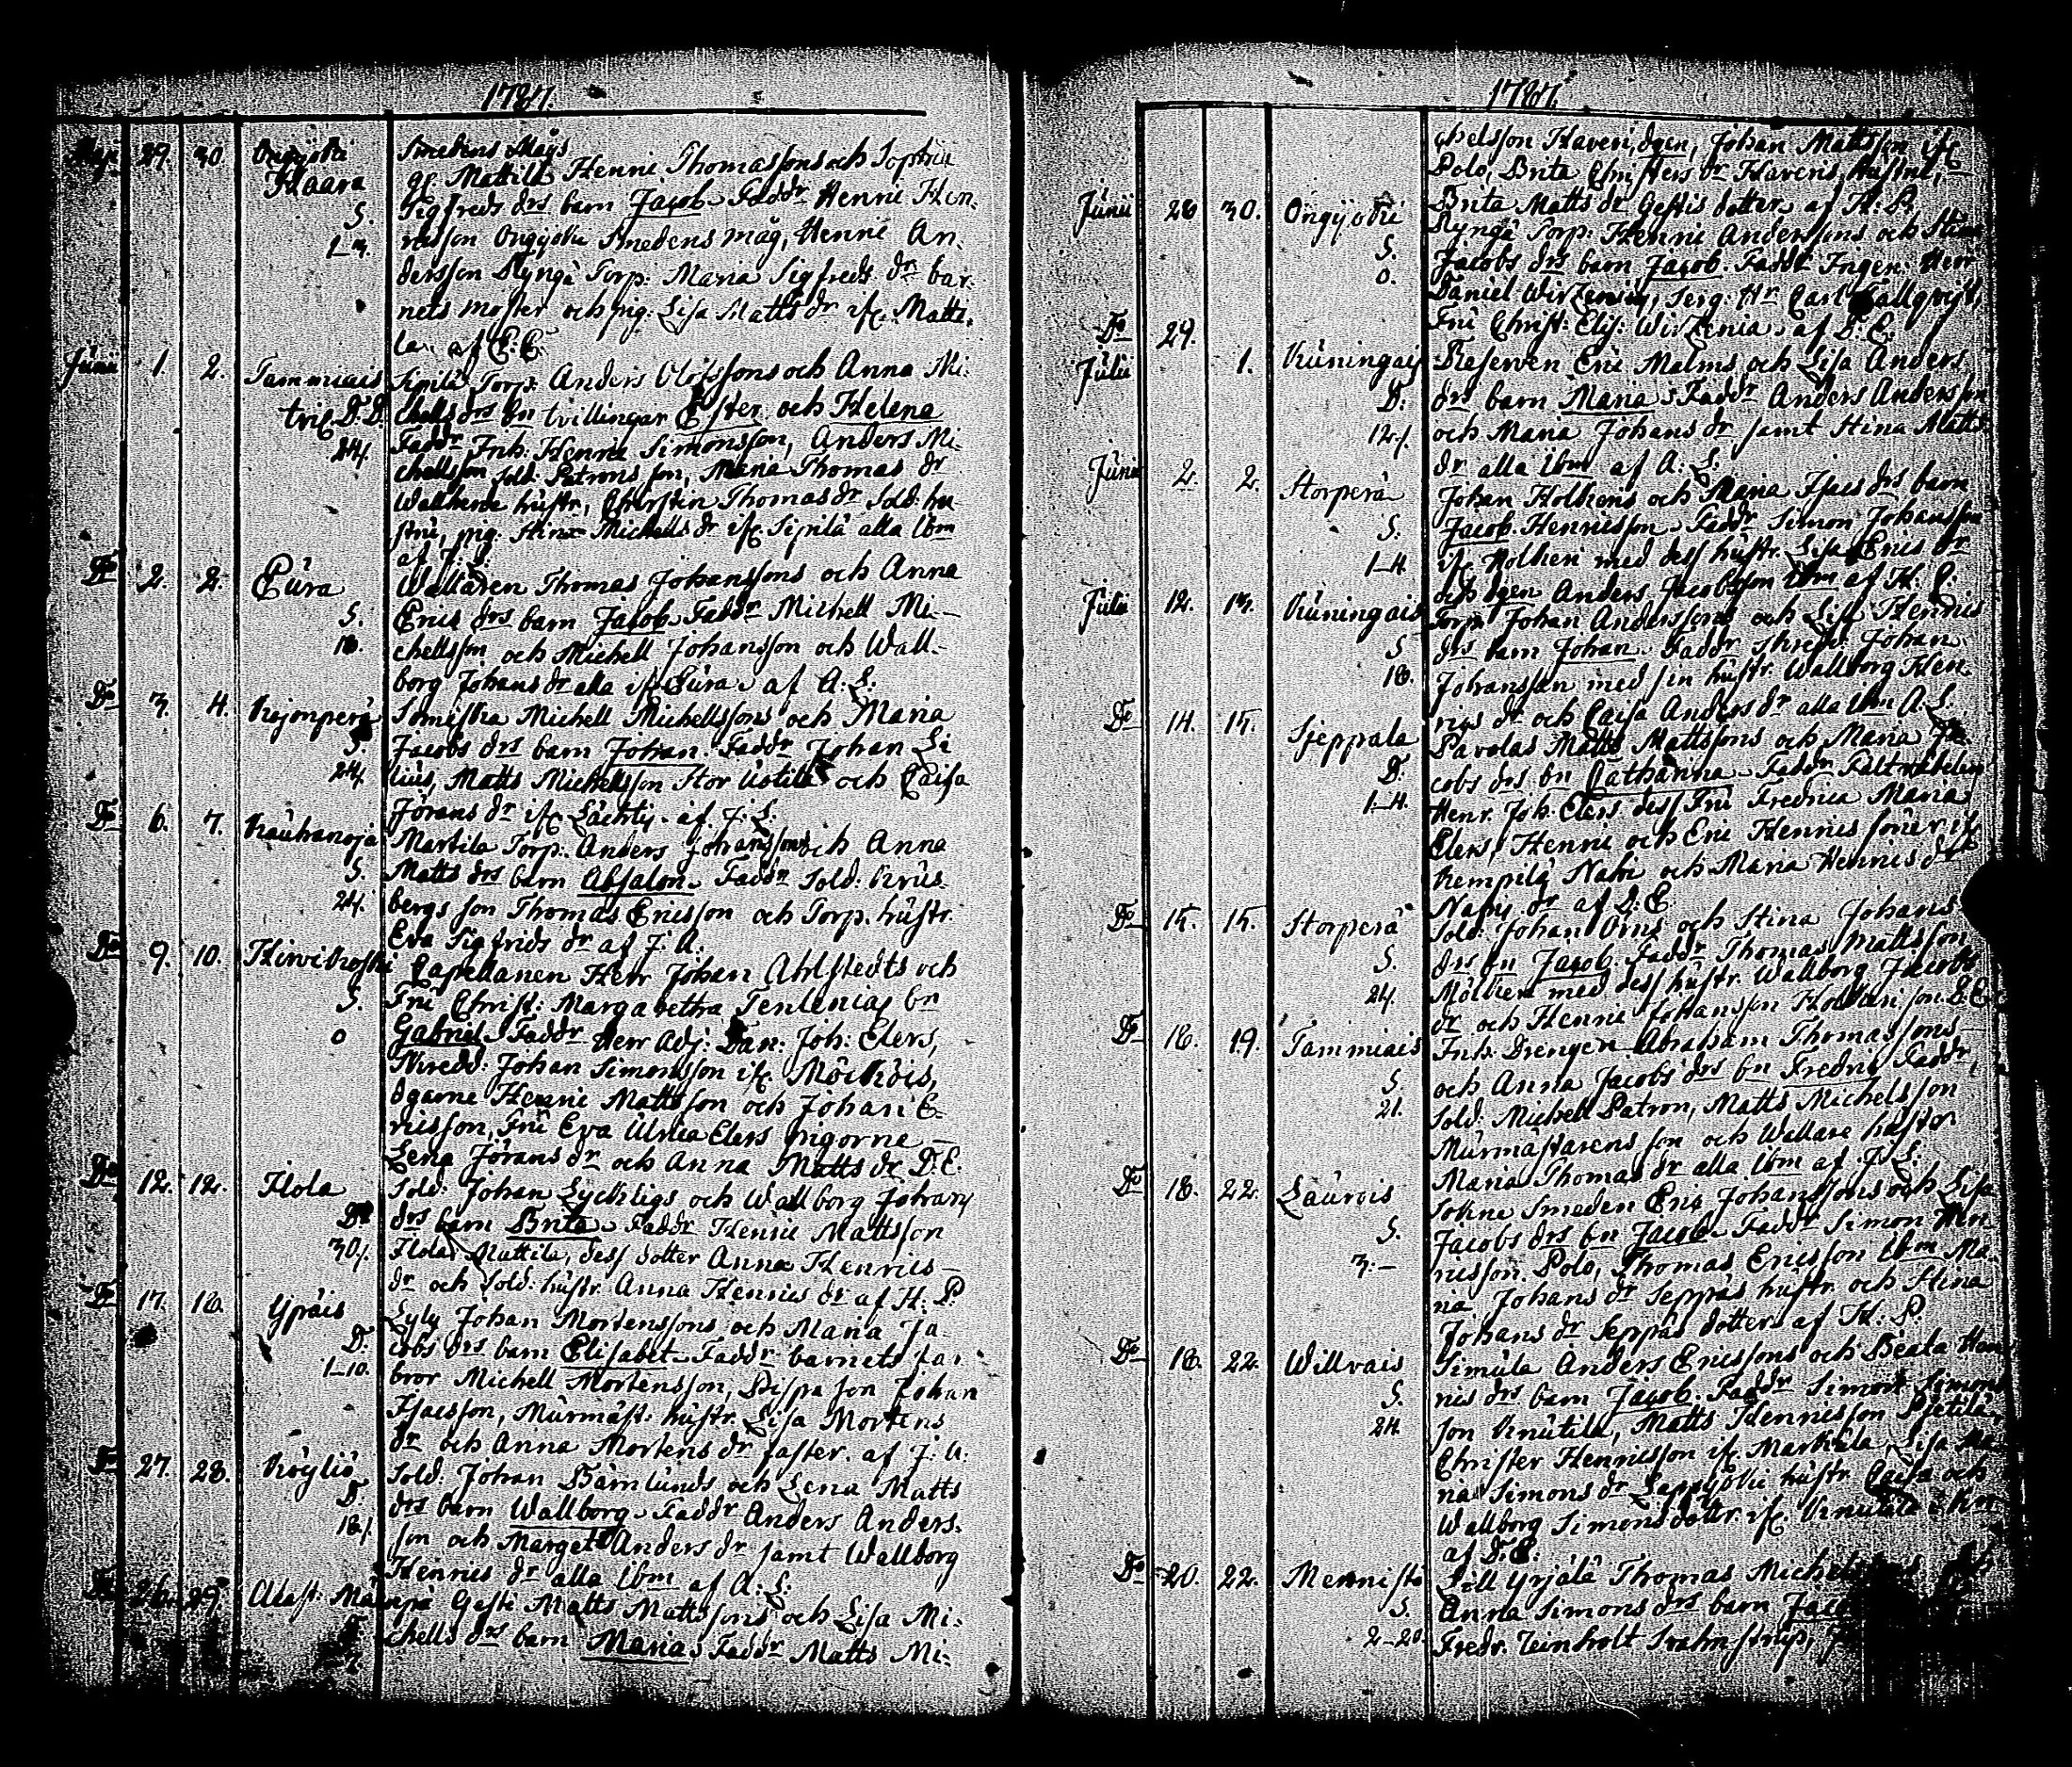 1787.
Maji 29. 30. Ongijoki Smedens Mågs
Haara gl. Mattila Henric Thomassons och Sophia
S. Sigfreds drs barn Jacob. Faddr Henric Hen-
1-3. ricsson Ongijoki Smedens måg, Henric An-
dersson Kyngä Torp: Maria Sigfreds dr bar-
nets moster och pig: Lisa Matts dr ifr. Matti-
la. af E: E:
Junii 1. 2. Tammiais Sipilä Torp: Anders Olofssons och Anna Mi-
tvil. D. D. chells drs bn tvillingar Ester och Helena
24. Faddr Inh: Henric Simonsson, Anders Mi-
chellsson sold: Patrons son, Maria Thomas dr
Wallkena hustr, Christin Thomas dr Sold: hu
stru, pig: Stina Michells dr ifr. Sipilä alla ibm
af J: S:
Do 2. 2. Eura Wallåren Thomas Johanssons och Anna
S. Erics drs barn Jacob. Faddr Michell Mi-
18. chellsson och Michell Johansson och Wall-
borg Johans dr alla ifr. Eura. af A. L.
Do 3. 4. Kojonperä Somiska Michell Michellssons och Maria
S. Jacobs drs barn Johan. Faddr Johan Li
24. lius, Matts Michellsson Stor Ustila och Caisa
Jörans dr ifr. af. J. L.
Do 6. 7. Kauhanoja Martila Torp: Anders Johanssons och Anna
S. Matts drs barn Absalon. Faddr Sold: Krus-
24. bergs son Thomas Ericsson och Torp. hustr.
Eva Sigfrids dr af J. A.
Do 9. 10. Hirvikoski Capellanen Herr Johan Ahlstedts och
S. Fru Christ: Margaretha Tenlenias bn
0 Gabriel. Faddr Herr Adj: Dan: Joh: Elers,
Johan Simonsson ifr. Möicköis,
dgarne Henric Mattsson och Johan E-
ricsson, Fru Eva Ulrica Elers pigorne
Lena Jörans dr och Anna Matts dr. D. E.
Do 12. 12. Hola Sold: Johan Lyckligs och Wallborg Johans
D drs barn Brita. Faddr Henric Mattsson
30/. Hola Mattila, dess dotter Anna Henrics
dr och Sold: hustr. Anna Henrics dr af H: P:
Do 17. 18. Ypäis Lyly Johan Mortenssons och Maria Ja-
D. cobs drs barn Elisabet. Faddr barnets far-
1-10. bror Michell Mortensson, Pispa son Johan
Isacsson, Murmäst: hustr. Lisa Mortens
dr och Anna Mortens dr faster. af J: A:
Do 27. 28. Köyliö Sold: Johan Bärnlunds och Lena Matts
D. drs barn Wallborg. Faddr Anders Anders-
18/. son och Marget Anders dr samt Wallborg
Henrics dr alla ibm af A: L:
Do 26. 29. Alast: Mä Gesti Matts Mattssons och Lisa Mi-
chells drs barn Maria. Faddr Matts Mi-
1787.
chelsson Haveri, dgen, Johan Mattsson ifr
Polo, Brita Christers dr Haveris hustru,
Brita Matts dr Gestis dotter af H: P.
Junii 28 30. Ongijoki Kyngä Torp: Henric Anderssons och Stina
S. Jacobs drs barn Jacob. Faddr Ingen. Herr
0. Daniel Wirzenius, Serg: Hr Carl Tallqvist,
Fru Christ: Elis: Wirzenia. af D: E:
Do 29.
Julii 1. Kuningais Reserven Eric Malms och Lisa Anders
D: drs barn Maria. Faddr Anders Andersson
12./. och Maria Johans dr samt Stina Matts
dr alla ibm af A: L:
Junii 2. 2. Storperä Johan Holkeris och Maria Isacs drs barn
S. Jacob. Henricsson Faddr Simon Johansson
1-4. ifr Holkeri med dess hustr. Lisa Erics dr
och dgen Anders Jacobsson ibm af H. P.
Julii 12. 13. Kuningais Torp: Johan Anderssons och Lisa Henrics
S drs barn Johan. Faddr Johan
18. Johansson med sin hustr. Wallborg Hen-
rics dr och Caisa Anders dr alla ibm A. L.
Do 14. 15. Sjeppala Pavolas Matts Mattssons och Maria Ja-
D: cobs drs bn Catharina. Faddr Fältwäbelen
1-4. Henr. Joh. Elers dess Fru Fredrica Maria
Elers, Henric och Eric Henrics söner ifr
Kempilä Napi och Maria Henrics dr
Napis dr af D: E.
Do 15. 15. Storperä Sold: Johan Oms och Stina Johans
S. drs bn Jacob. Faddr Thomas Mattsson
24. med dess hustr. Wallborg Jacobs
dr och Henric Johansson Holkeri son. D: E.
Do 18. 19. Tammiais Inh: Drengen Abraham Thomassons
S. och Anna Jacobs drs bn Fredric. Faddr,
21. Sold: Michell Patron, Matts Michelsson
Murmästarens son och Wallare hustor
Maria Thomas dr alla ibm af J: S:
Do 18. 22. Laurois Sokne Smeden Eric Johanssons och Lisa
S. Jacobs drs bn Jacob. Faddr Simon Hen
3.- ricsson Polo, Thomas Ericsson ibm Ma
ria Johans dr Seppäs hustr. och Stina
Johans dr Seppäs dotter. af H: P.
Do 18. 22. Willvais Simula Anders Ericssons och Beata Hen
S. rics drs barn Jacob. Faddr Simon Simons
24. son Knutila, Matts Henricsson Pjetila,
Christer Henricsson ifr. Markula, Lisa Ma
ria Simons dr hustr. Caisa och
Wallborg Simons dotter ifr. Knutila
af D. E.
Do 20. 22. Mennistö Lill Yrjälä Thomas Michelssons och
S. Anna Simons drs barn Jacob
2-20. Fredr. Reinholt